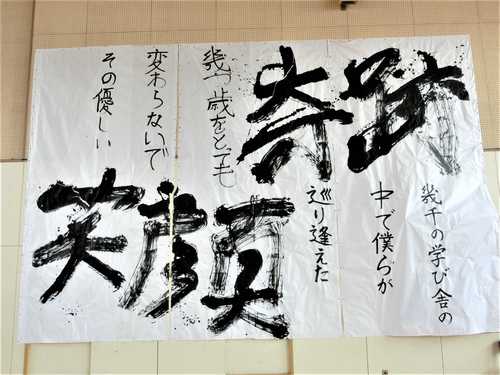 幾千の学び舎の
中で僕らが
巡り逢えた
奇跡
幾つ歳をとっても
変わらないで
その優しい
笑顔